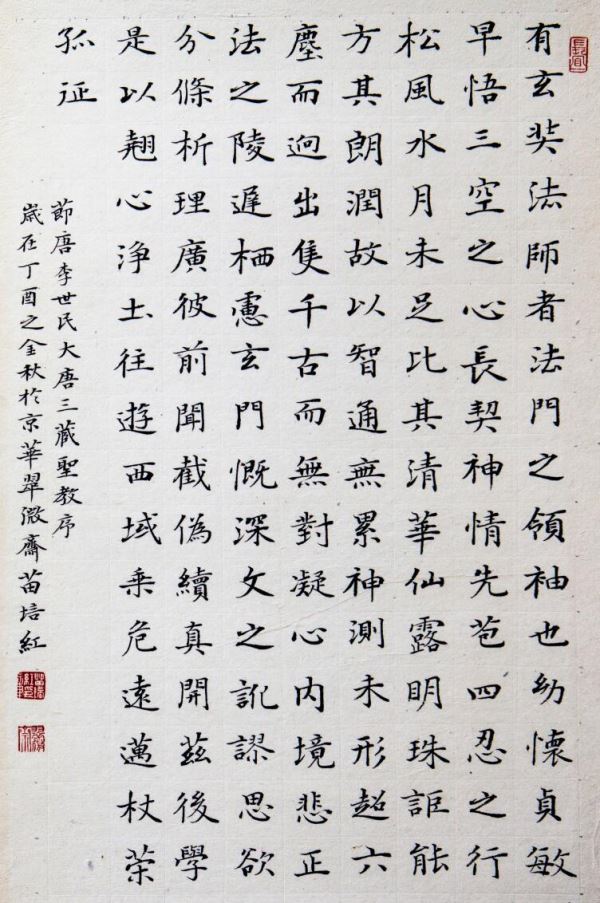 有玄奘法師者法門之領袖也幼懷貞敏
早悟三空之心長契神情先苞四忍之行
松風水月未足比其清華仙露明珠詎能
方其朗潤故以智通無累神測未形超六
塵而迥出隻千古而無對凝心內境悲正
法之陵遲栖慮玄門慨深文之訛謬思欲
分條析理廣彼前聞截偽續真開茲後學
是以翹心淨土往遊西域乘危遠邁杖策
孤征
節唐李世民大唐三藏聖教序
歲在丁酉之金秋於京華翠微齋苗培紅